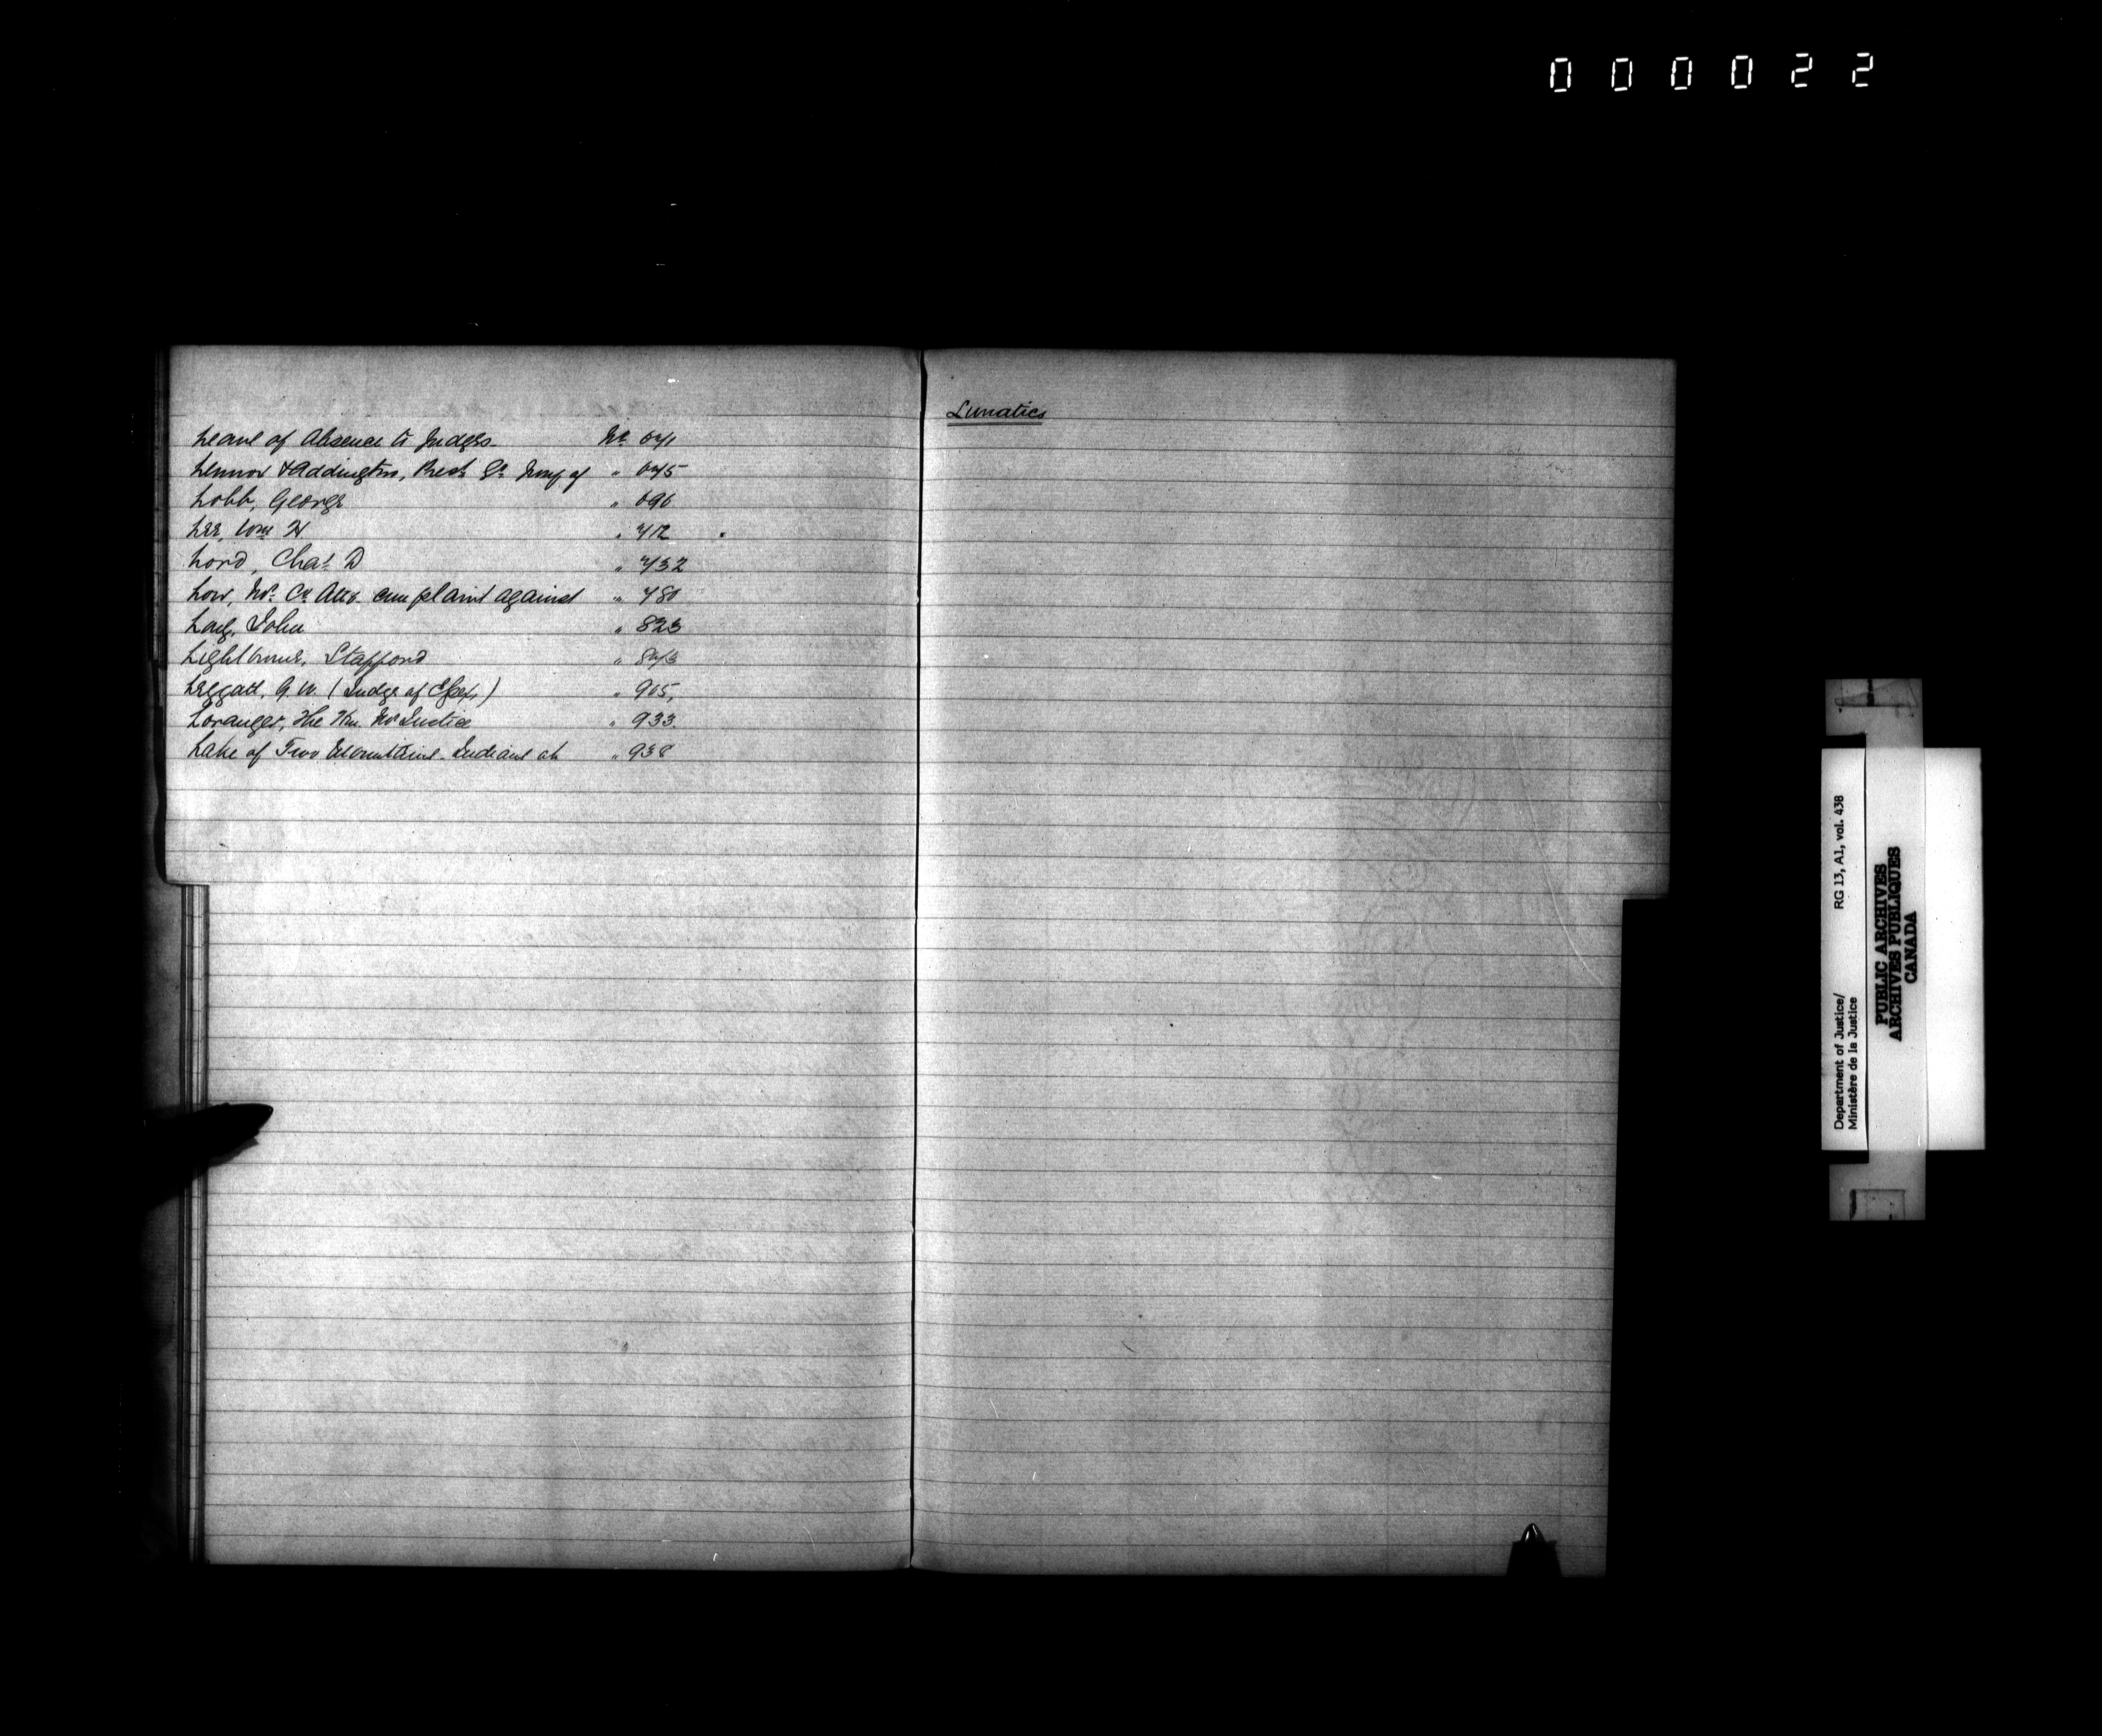 000022
Leave of Absence to Judges Nº 671
Lennox & Addington, Gd. Jury of " 675
Lobb, George " 696
Lee, Wm H " 712
Lord, Chas. D " 732
Low, Mr. Co. Atty. complaint against " 780
Long, John " 823
Lightbourne, Stafford " 873
Leggatt, G. W. (Judge of Essex) " 905,
Loranger, The Hon. Mr Justice " 933.
Lake of Two Mountains. Indians at " 938
Lunatics
Department of Justice/ RG 13, A1, vol. 438
Ministère de la Justice
PUBLIC ARCHIVES
ARCHIVES PUBLIQUES
CANADA